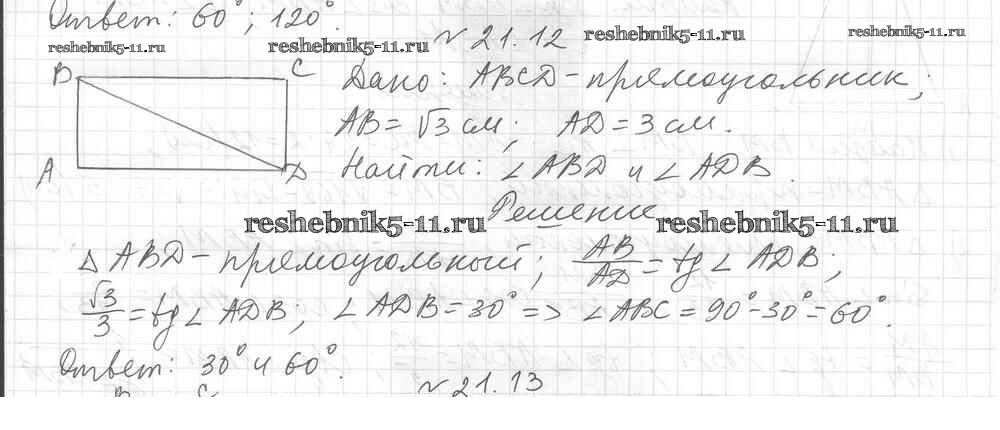 Ответ: 60°; 120°.
reshebnik5-11.ru reshebnik5-11.ru reshebnik5-11.ru reshebnik5-11.ru
№ 21.12
B C
A D
Дано: ABCD - прямоугольник;
AB = √3 см; AD = 3 см.
Найти: ∠ABD и ∠ADB.
Решение
reshebnik5-11.ru reshebnik5-11.ru
△ABD - прямоугольный; AB/AD = tg∠ADB;
√3/3 = tg∠ADB; ∠ADB = 30° => ∠ABC = 90° - 30° = 60°.
Ответ: 30° и 60°.
B C № 21.13